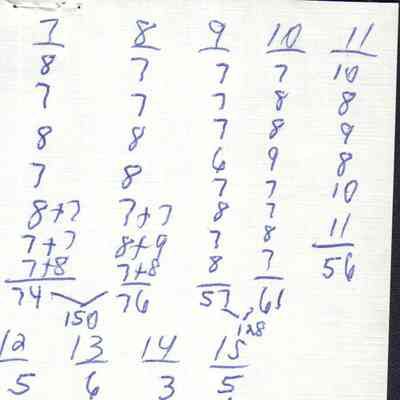 7 8 9 10 11
8 7 7 7 10
7 7 7 8 8
8 8 7 8 9
7 8 6 9 8
7 7 10
8+7 7+7 8 7 11
7+7 8+9 7 8
7+8 7+8 8 7 56
74 76 57 61
150 128
12 13 14 15
5 6 3 5